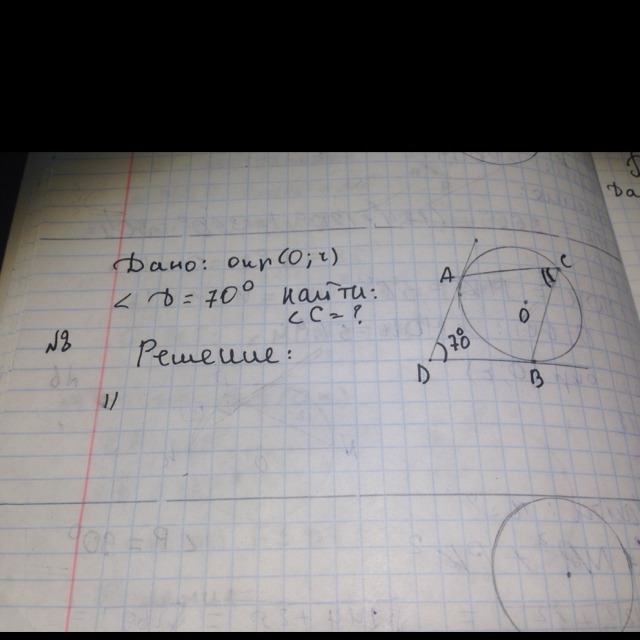 Дано: окр(O; r)
< D = 70° найти:
< C = ?
№8
Решение:
1)
A
C
O
70°
D
B
Да
< B = 90°